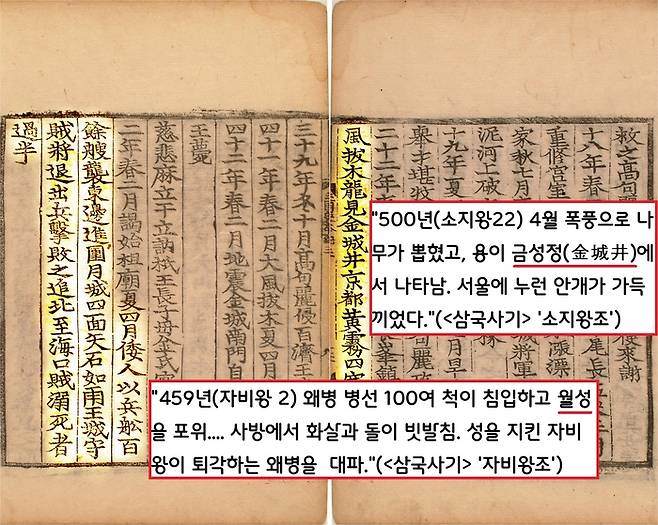 救之高句麗
十八年春
重修宮室
家教七月
泥河上破
十九年夏
擧才堪牧
二十二年
風拔木龍見金城井京都黃霧四塞
三十九年冬十月高句麗侵百濟王
四十一年春二月大風拔木夏四月
四十二年春二月地震金城南門自
王薨
慈悲麻立干立訥祗王長子母金氏實
二年春二月謁始祖廟夏四月倭人以兵舩百
餘艘襲東邊進圍月城四面矢石如雨王城守
賊將退出兵擊敗之追北至海口賊溺死者
過半
"500년(소지왕22) 4월 폭풍으로 나
무가 뽑혔고, 용이 금성정(金城井)에
서 나타남. 서울에 누런 안개가 가득
끼었다."(<삼국사기> '소지왕조')
"459년(자비왕 2) 왜병 병선 100여 척이 침입하고 월성
을 포위.... 사방에서 화실과 돌이 빗발침. 성을 지킨 자비
왕이 퇴각하는 왜병을 대파."(<삼국사기> '자비왕조')